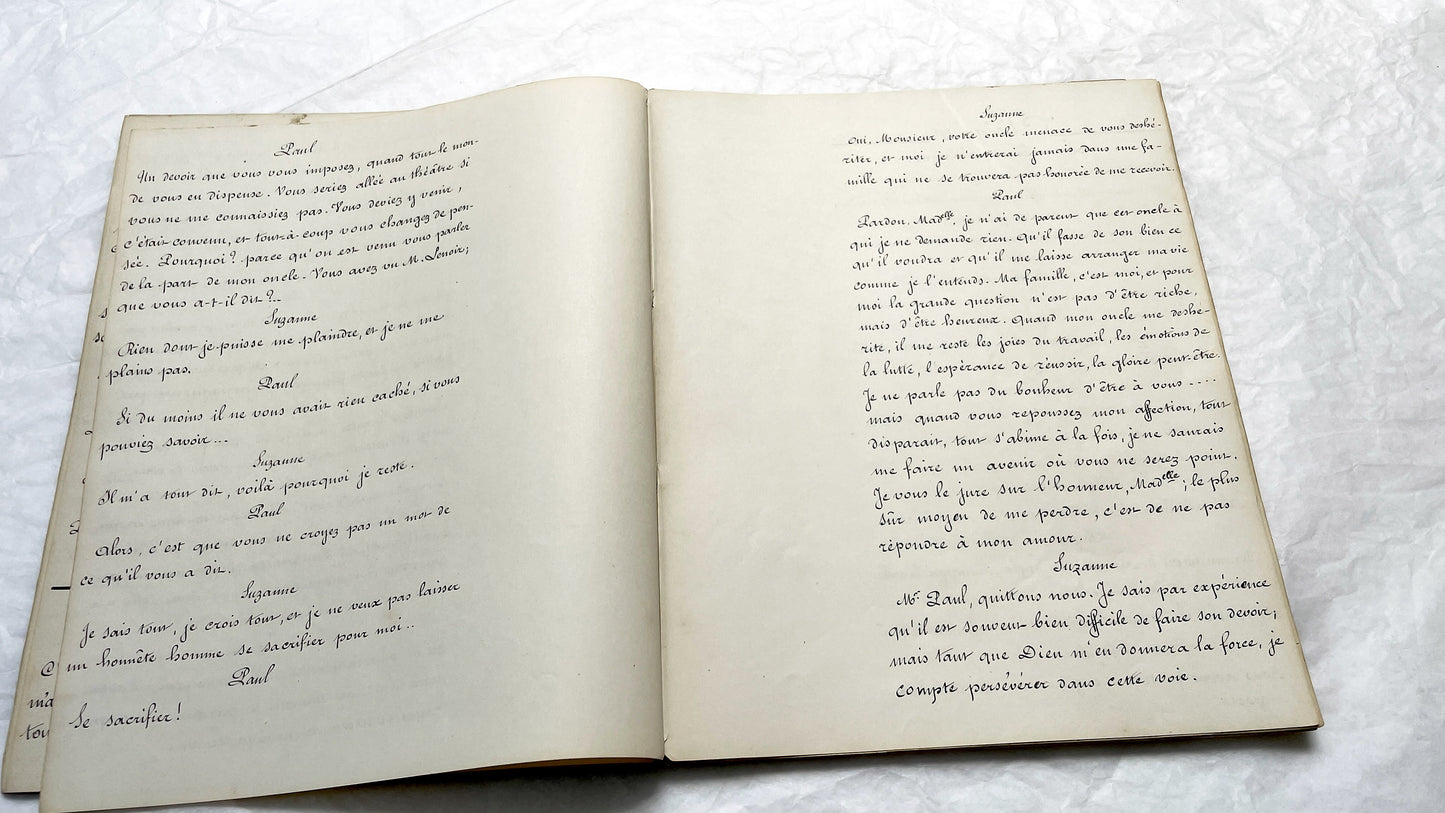 Paul
Un devoir que vous vous imposez, quand tout le mon-
de vous en dispense. Vous seriez allée au théâtre si
vous ne me connaissiez pas. Vous deviez y venir,
c'était convenu, et tout-à-coup vous changez de pen-
sée. Pourquoi? parce qu'on est venu vous parler
de la part de mon oncle. Vous avez vu M. Lenoir;
que vous a-t-il dit?..
Suzanne
Rien dont je puisse me plaindre, et je ne me
plains pas.
Paul
Si du moins il ne vous avait rien caché, si vous
pouviez savoir...
Suzanne
Il m'a tout dit, voilà pourquoi je reste.
Paul
Alors, c'est que vous ne croyez pas un mot de
ce qu'il vous a dit.
Suzanne
Je sais tout, je crois tout, et je ne veux pas laisser
un honnête homme se sacrifier pour moi..
Paul
Se sacrifier!
m'a
tou
Suzanne
Oui, Monsieur, votre oncle menace de vous deshé-
riter, et moi je n'entrerai jamais dans une fa-
mille qui ne se trouvera pas honorée de me recevoir.
Paul
Pardon, Madelle, je n'ai de parent que cet oncle à
qui je ne demande rien. Qu'il fasse de son bien ce
qu'il voudra et qu'il me laisse arranger ma vie
comme je l'entends. Ma famille, c'est moi, et pour
moi la grande question n'est pas d'être riche,
mais d'être heureux. Quand mon oncle me deshé-
rite, il me reste les joies du travail, les émotions de
la lutte, l'espérance de réussir, la gloire peut-être.
Je ne parle pas du bonheur d'être à vous ....
mais quand vous repoussez mon affection, tout
disparait, tout s'abime à la fois, je ne saurais
me faire un avenir où vous ne serez point.
Je vous le jure sur l'honneur, Madelle; le plus
sûr moyen de me perdre, c'est de ne pas
répondre à mon amour.
Suzanne
Mr Paul, quittons nous. Je sais par expérience
qu'il est souvent bien difficile de faire son devoir;
mais tant que Dieu m'en donnera la force, je
compte persévérer dans cette voie.